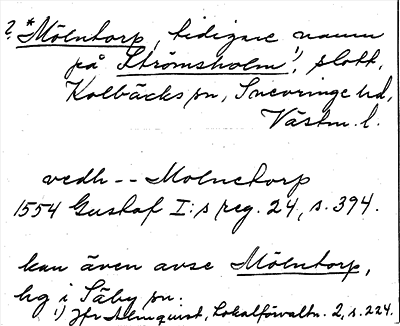 ? *Mölntorp, tidigare namn
på Strömsholm¹), slott,
Kolbäcks sn, Snevringe hd,
Västm. l.
vedh -- Molnetorp
1554 Gustaf I:s reg. 24, s. 394.
kan även avse Mölntorp,
hg i Säby sn.
¹) Jfr Almquist, Lokalförvaltn. 2, s. 224.